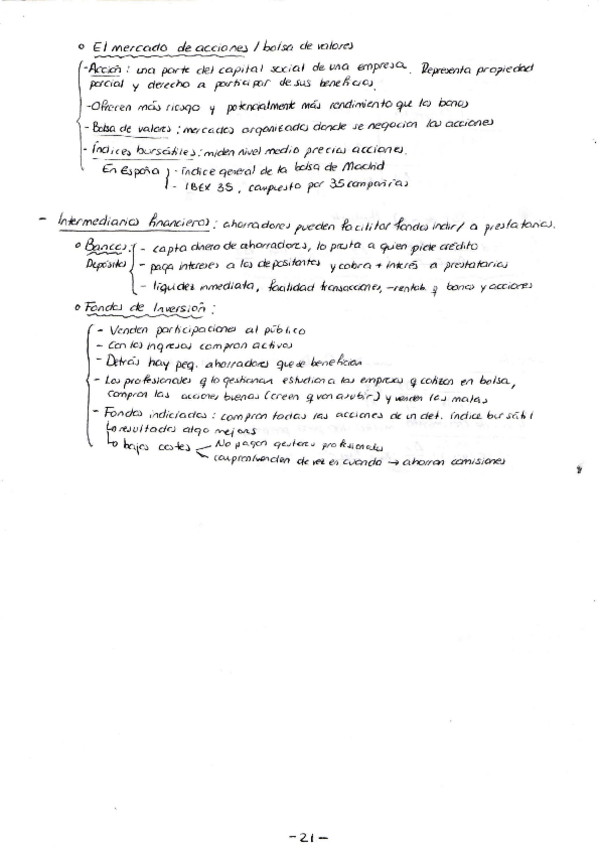 o El mercado de acciones / bolsa de valores
- Acción : una parte del capital social de una empresa. Representa propiedad
parcial y derecho a participar de sus beneficios.
- Ofrecen más riesgo y potencialmente más rendimiento que los bonos
- Bolsa de valores : mercados organizados donde se negocian las acciones
- Índices bursátiles : miden nivel medio precios acciones.
En España } - índice general de la bolsa de Madrid
- IBEX 35, compuesto por 35 compañías
- Intermediarios financieros : ahorradores pueden facilitar fondos indir/ a prestatarios.
o Bancos: - capta dinero de ahorradores, lo presta a quien pide crédito
Depósitos - paga intereses a los depositantes y cobra + interés a prestatarios
- liquidez inmediata, facilidad transacciones, - rentab. q bonos y acciones
o Fondos de Inversión :
- Venden participaciones al público
- Con los ingresos compran activos
- Detrás hay peq. ahorradores que se benefician
- Los profesionales q lo gestionan estudian a las empresas q cotizan en bolsa,
compran las acciones buenas (creen q van a subir) y venden las malas
- Fondos indiciados : compran todas las acciones de un det. índice bursátil
↳ resultados algo mejores
↳ bajos costes - No pagan gestores profesionales
compran/venden de vez en cuando → ahorran comisiones
- 21 -